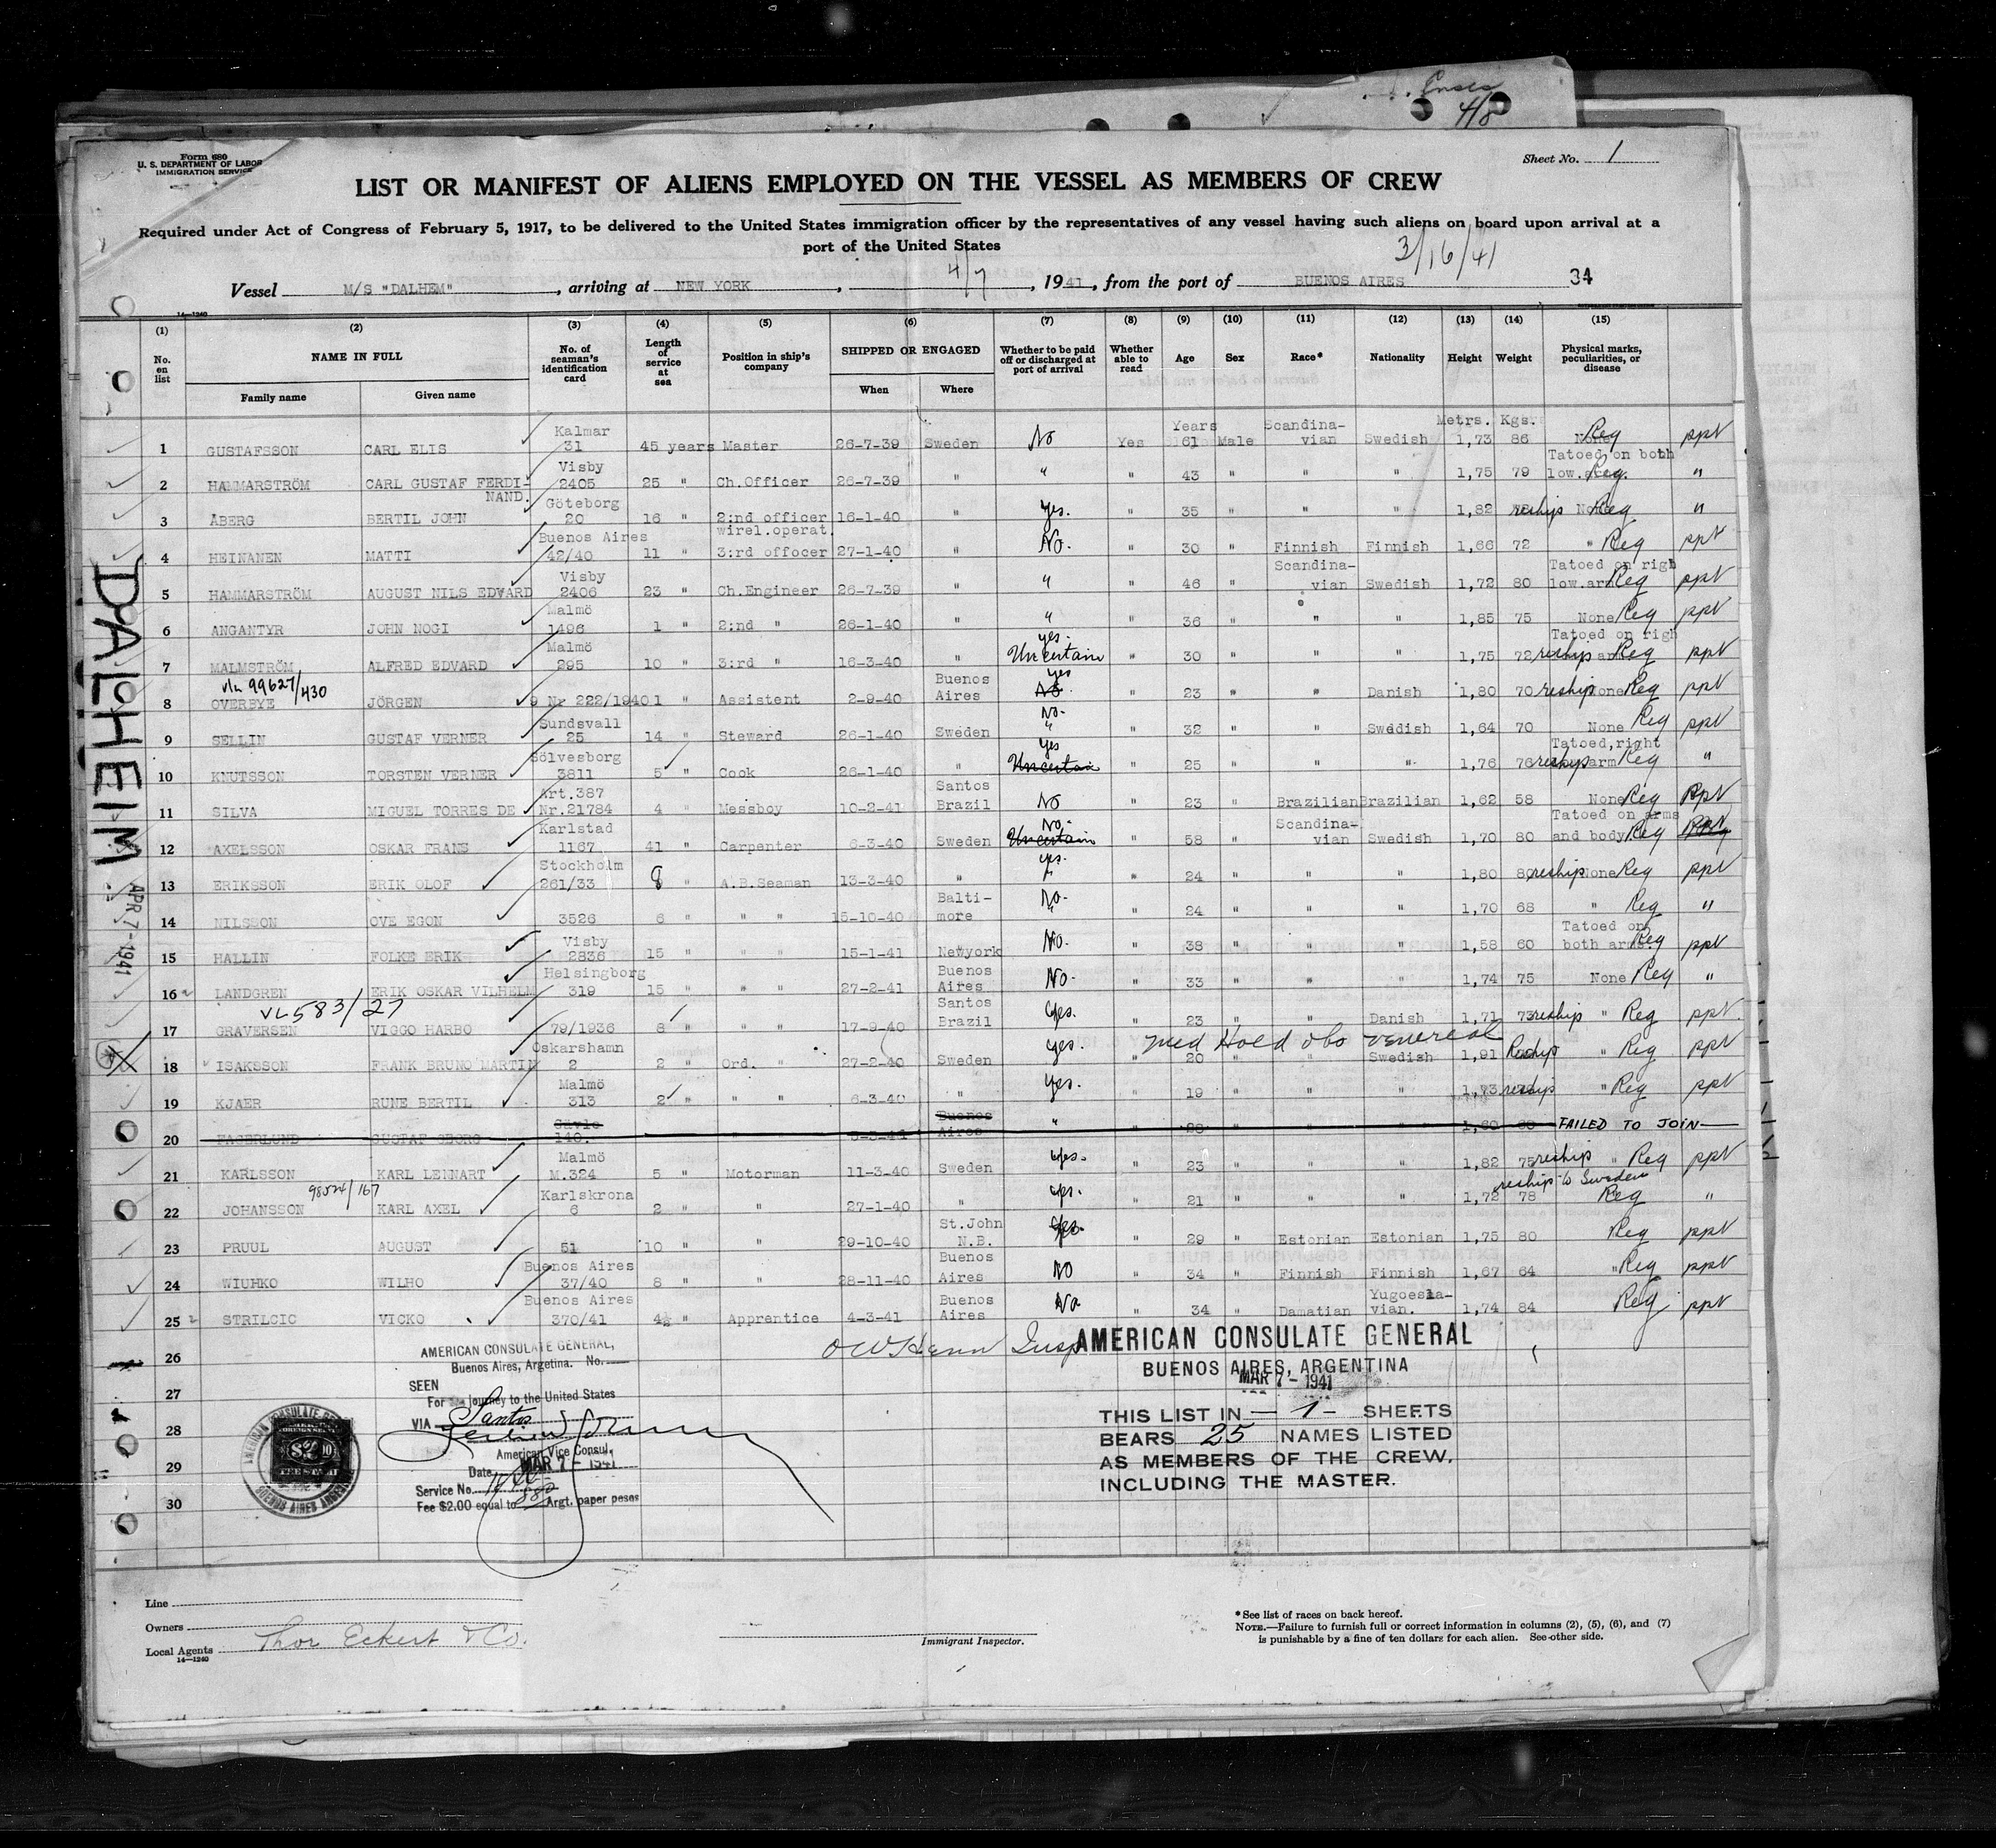 Form 680
U. S. DEPARTMENT OF LABOR
IMMIGRATION SERVICE
4/8
Sheet No. 1
LIST OR MANIFEST OF ALIENS EMPLOYED ON THE VESSEL AS MEMBERS OF CREW
Required under Act of Congress of February 5, 1917, to be delivered to the United States immigration officer by the representatives of any vessel having such aliens on board upon arrival at a
port of the United States
3/16/41
Vessel M/S "DALHEM", arriving at NEW YORK, 4/7, 1941, from the port of BUENOS AIRES 34
14—1240
(1) (2) (3) (4) (5) (6) (7) (8) (9) (10) (11) (12) (13) (14) (15)
No. en list NAME IN FULL Family name Given name No. of seaman's identification card Length of service at sea Position in ship's company SHIPPED OR ENGAGED When Where Whether to be paid off or discharged at port of arrival Whether able to read Age Sex Race* Nationality Height Weight Physical marks, peculiarities, or disease
Kalmar Years Scandina- Metrs. Kgs.
1 GUSTAFSSON CARL ELIS 31 45 years Master 26-7-39 Sweden No Yes 61 Male vian Swedish 1,73 86 None Reg ppt
Visby Tatoed on both
2 HAMMARSTRÖM CARL GUSTAF FERDI- 2405 25 " Ch.Officer 26-7-39 " " " 43 " " " 1,75 79 low.arm Reg. "
NAND. Göteborg
3 ÅBERG BERTIL JOHN 20 16 " 2:nd officer 16-1-40 " Yes. " 35 " " " 1,82 reship None Reg "
Buenos Aires wirel.operat.
4 HEINANEN MATTI 42/40 11 " 3:rd offocer 27-1-40 " No. " 30 " Finnish Finnish 1,66 72 " Reg ppt
Visby Scandina- Tatoed on righ
5 HAMMARSTRÖM AUGUST NILS EDVARD 2406 23 " Ch.Engineer 26-7-39 " " " 46 " vian Swedish 1,72 80 low.arm Reg ppt
Malmö
6 ANGANTYR JOHN NOGI 1496 1 " 2:nd " 26-1-40 " " " 36 " " " 1,85 75 None Reg ppt
Malmö yes. Tatoed on righ
7 MALMSTRÖM ALFRED EDVARD 295 10 " 3:rd " 16-3-40 " Uncertain " 30 " " " 1,75 72 reship arm Reg ppt
99627/430 Buenos yes
8 OVERBYE JÖRGEN 9 Nr 222/1940 1 " Assistent 2-9-40 Aires No. " 23 " " Danish 1,80 70 reship None Reg ppt
Sundsvall No.
9 SELLIN GUSTAF VERNER 25 14 " Steward 26-1-40 Sweden " " 32 " " Swedish 1,64 70 None Reg ppt
Sölvesborg Yes Tatoed,right
10 KNUTSSON TORSTEN VERNER 3811 5 " Cook 26-1-40 " Uncertain " 25 " " " 1,76 76 reship arm Reg "
Art.387 Santos
11 SILVA MIGUEL TORRES DE Nr.21784 4 " Messboy 10-2-41 Brazil No " 23 " Brazilian Brazilian 1,62 58 None Reg ppt
Karlstad No. Scandina- Tatoed on arms
12 AXELSSON OSKAR FRANS 1167 41 " Carpenter 6-3-40 Sweden Uncertain " 58 " vian Swedish 1,70 80 and body Reg
Stockholm yes.
13 ERIKSSON ERIK OLOF 261/33 8 " A.B.Seaman 13-3-40 " " " 24 " " " 1,80 80 reship None Reg ppt
Balti- No.
14 NILSSON OVE EGON 3526 6 " " " 15-10-40 more " " 24 " " " 1,70 68 " Reg "
Visby Tatoed on
15 HALLIN FOLKE ERIK 2836 15 " " " 15-1-41 Newyork No. " 38 " " " 1,58 60 both arms Reg ppt
Helsingborg Buenos
16 LANDGREN ERIK OSKAR VILHELM 319 15 " " " 27-2-41 Aires No. " 33 " " " 1,74 75 None Reg "
VL 583/27 Santos
17 GRAVERSEN VIGGO HARBO 79/1936 8 " " " 17-9-40 Brazil Yes. " 23 " " Danish 1,71 73 reship " Reg ppt.
Oskarshamn Med Hold obs venereal
18 ISAKSSON FRANK BRUNO MARTIN 2 2 " Ord. " 27-2-40 Sweden yes. " 20 " " Swedish 1,91 Reship " Reg ppt
Malmö
19 KJAER RUNE BERTIL 313 2 " " " 6-3-40 " Yes. " 19 " " " 1,73 reship " Reg ppt
Gävle Buenos
20 FAGERLUND GUSTAF GEORG 140. Aires " FAILED TO JOIN
Malmö
21 KARLSSON KARL LENNART M.324 5 " Motorman 11-3-40 Sweden Yes. " 23 " " " 1,82 75 reship " Reg ppt
98524/167 Karlskrona reship to Sweden
22 JOHANSSON KARL AXEL 6 2 " " 27-1-40 " yes. " 21 " " " 1,72 78 Reg "
St.John
23 PRUUL AUGUST 51 10 " " 29-10-40 N.B. Yes. " 29 " Estonian Estonian 1,75 80 Reg ppt
Buenos Aires Buenos
24 WIUHKO WILHO 37/40 8 " " 28-11-40 Aires NO " 34 " Finnish Finnish 1,67 64 " Reg ppt
Buenos Aires Buenos Yugoesla-
25 STRILCIC VICKO 370/41 4½ " Apprentice 4-3-41 Aires No " 34 " Damatian vian. 1,74 84 Reg ppt
26
27
28
29
30
DALHEIM
APR 7-1941
AMERICAN CONSULATE GENERAL,
Buenos Aires, Argetina. No.
SEEN
For journey to the United States
VIA Santos
American Vice Consul.
Date MAR 7 - 1941
Service No.
Fee $2.00 equal to Argt. paper pesos
Insp
AMERICAN CONSULATE GENERAL
BUENOS AIRES, ARGENTINA
MAR 7 - 1941
THIS LIST IN - 1 - SHEETS
BEARS 25 NAMES LISTED
AS MEMBERS OF THE CREW.
INCLUDING THE MASTER.
Line
Owners
Local Agents Thor Eckert & Co.
14—1240
Immigrant Inspector.
*See list of races on back hereof.
NOTE.—Failure to furnish full or correct information in columns (2), (5), (6), and (7)
is punishable by a fine of ten dollars for each alien. See other side.